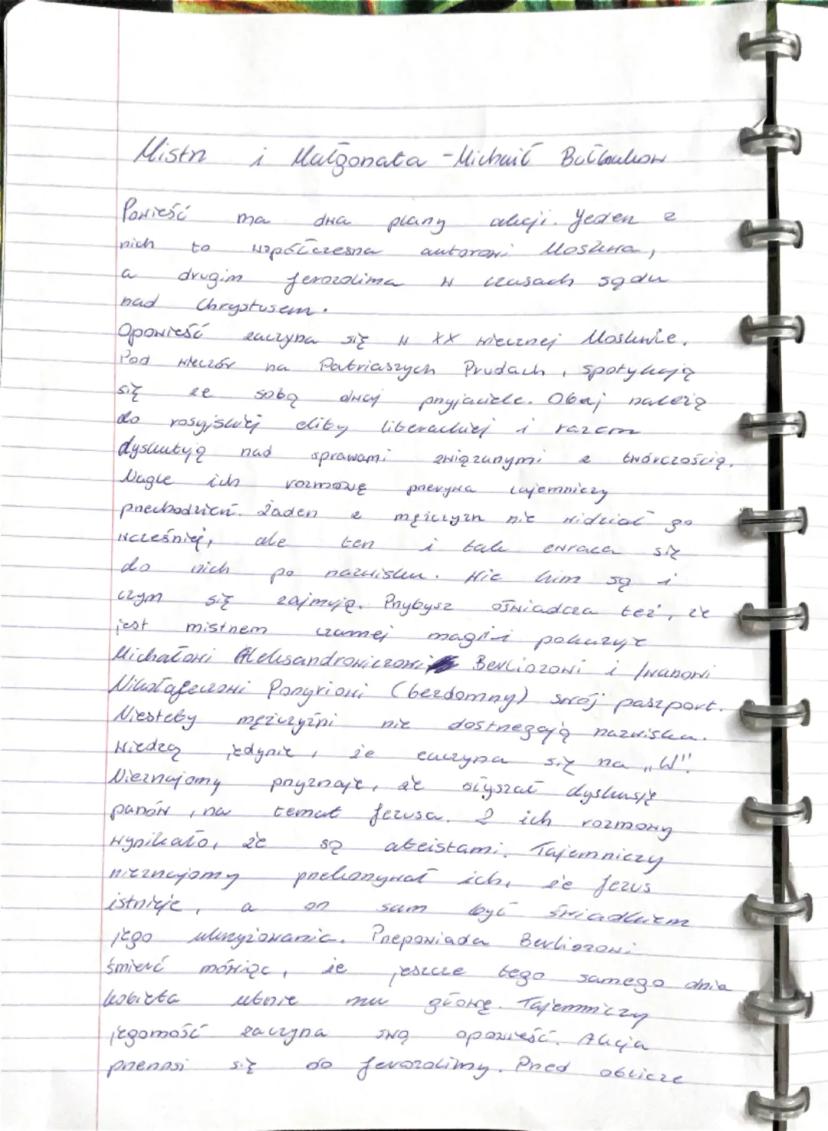 Mistrz i Małgorzata - Michaił Bułhakow
Powieść ma dwa plany akcji. Jeden z
nich to współczesna autorowi Moskwa,
a drugim Jerozolima w czasach sądu
nad Chrystusem.
Opowieść zaczyna się w XX wiecznej Moskwie.
Pod wieczór na Patriaszych Prudach, spotykają
się ze sobą dwaj przyjaciele. Obaj należą
do rosyjskiej elity literackiej i razem
dyskutują nad sprawami związanymi z twórczością.
Nagle ich rozmowę przerywa tajemniczy
przechodzień. Żaden z mężczyzn nie widział go
wcześniej, ale ten i tak zwraca się
do nich po nazwisku. Wie kim są i
czym się zajmują. Przybysz oświadcza też, że
jest mistrzem czarnej magii i pokazuje
Michałowi Aleksandrowiczowi Berliozowi i Iwanowi
Nikołajeczowi Ponyriowi (bezdomny) swój paszport.
Niestety mężczyźni nie dostrzegają nazwiska.
Wiedzą jedynie, że zaczyna się na „W".
Nieznajomy przyznaje, że słyszał dyskusję
panów, na temat Jezusa. Z ich rozmowy
wynikało, że są ateistami. Tajemniczy
nieznajomy przekonywał ich, że Jezus
istnieje, a on sam był świadkiem
jego ukrzyżowania. Przepowiada Berliozowi
śmierć mówiąc, że jeszcze tego samego dnia
kobieta utnie mu głowę. Tajemniczy
jegomość zaczyna swą opowieść. Akcja
przenosi się do Jerozolimy. Przed oblicze